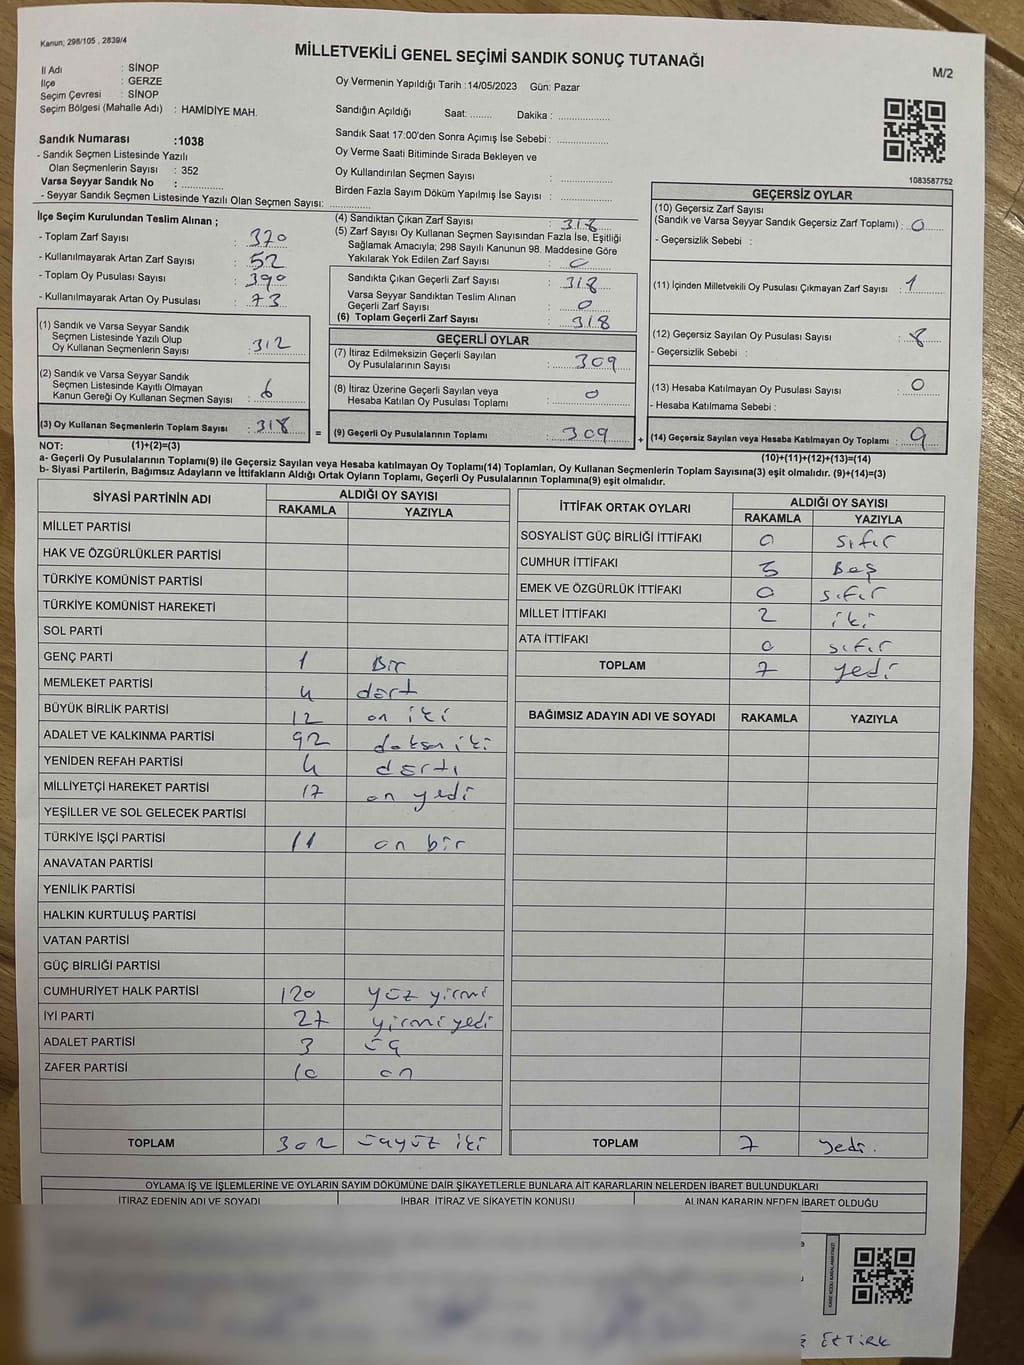 Kanun; 298/105 , 2839/4
MİLLETVEKİLİ GENEL SEÇİMİ SANDIK SONUÇ TUTANAĞI
M/2
İl Adı : SİNOP
İlçe : GERZE
Seçim Çevresi : SİNOP
Seçim Bölgesi (Mahalle Adı) : HAMİDİYE MAH.
Sandık Numarası :1038
- Sandık Seçmen Listesinde Yazılı
Olan Seçmenlerin Sayısı : 352
Varsa Seyyar Sandık No : ..............
- Seyyar Sandık Seçmen Listesinde Yazılı Olan Seçmen Sayısı: ..............
Oy Vermenin Yapıldığı Tarih :14/05/2023 Gün: Pazar
Sandığın Açıldığı Saat: ........ Dakika : ..................
Sandık Saat 17:00'den Sonra Açımış İse Sebebi : ..................
Oy Verme Saati Bitiminde Sırada Bekleyen ve
Oy Kullandırılan Seçmen Sayısı : ..................
Birden Fazla Sayım Döküm Yapılmış İse Sayısı : ..................
1083587752
İlçe Seçim Kurulundan Teslim Alınan ;
- Toplam Zarf Sayısı : 370
- Kullanılmayarak Artan Zarf Sayısı : 52
- Toplam Oy Pusulası Sayısı : 390
- Kullanılmayarak Artan Oy Pusulası : 73
(1) Sandık ve Varsa Seyyar Sandık
Seçmen Listesinde Yazılı Olup
Oy Kullanan Seçmenlerin Sayısı : 312
(2) Sandık ve Varsa Seyyar Sandık
Seçmen Listesinde Kayıtlı Olmayan
Kanun Gereği Oy Kullanan Seçmen Sayısı : 6
(3) Oy Kullanan Seçmenlerin Toplam Sayısı : 318
(4) Sandıktan Çıkan Zarf Sayısı : 318
(5) Zarf Sayısı Oy Kullanan Seçmen Sayısından Fazla İse, Eşitliği
Sağlamak Amacıyla; 298 Sayılı Kanunun 98. Maddesine Göre
Yakılarak Yok Edilen Zarf Sayısı : 0
Sandıkta Çıkan Geçerli Zarf Sayısı : 318
Varsa Seyyar Sandıktan Teslim Alınan
Geçerli Zarf Sayısı : 0
(6) Toplam Geçerli Zarf Sayısı : 318
GEÇERLİ OYLAR
(7) İtiraz Edilmeksizin Geçerli Sayılan
Oy Pusulalarının Sayısı : 309
(8) İtiraz Üzerine Geçerli Sayılan veya
Hesaba Katılan Oy Pusulası Toplamı : 0
= (9) Geçerli Oy Pusulalarının Toplamı : 309
GEÇERSİZ OYLAR
(10) Geçersiz Zarf Sayısı
(Sandık ve Varsa Seyyar Sandık Geçersiz Zarf Toplamı) : 0
- Geçersizlik Sebebi :
(11) İçinden Milletvekili Oy Pusulası Çıkmayan Zarf Sayısı : 1
(12) Geçersiz Sayılan Oy Pusulası Sayısı : 8
- Geçersizlik Sebebi :
(13) Hesaba Katılmayan Oy Pusulası Sayısı : 0
- Hesaba Katılmama Sebebi :
+ (14) Geçersiz Sayılan veya Hesaba Katılmayan Oy Toplamı : 9
NOT: (1)+(2)=(3)
(10)+(11)+(12)+(13)=(14)
a- Geçerli Oy Pusulalarının Toplamı(9) ile Geçersiz Sayılan veya Hesaba katılmayan Oy Toplamı(14) Toplamları, Oy Kullanan Seçmenlerin Toplam Sayısına(3) eşit olmalıdır. (9)+(14)=(3)
b- Siyasi Partilerin, Bağımsız Adayların ve İttifakların Aldığı Ortak Oyların Toplamı, Geçerli Oy Pusulalarının Toplamına(9) eşit olmalıdır.
SİYASİ PARTİNİN ADI ALDIĞI OY SAYISI
RAKAMLA YAZIYLA
MİLLET PARTİSİ
HAK VE ÖZGÜRLÜKLER PARTİSİ
TÜRKİYE KOMÜNİST PARTİSİ
TÜRKİYE KOMÜNİST HAREKETİ
SOL PARTİ
GENÇ PARTİ 1 Bir
MEMLEKET PARTİSİ 4 dört
BÜYÜK BİRLİK PARTİSİ 12 on iki
ADALET VE KALKINMA PARTİSİ 92 doksan iki
YENİDEN REFAH PARTİSİ 4 dört
MİLLİYETÇİ HAREKET PARTİSİ 17 on yedi
YEŞİLLER VE SOL GELECEK PARTİSİ
TÜRKİYE İŞÇİ PARTİSİ 11 on bir
ANAVATAN PARTİSİ
YENİLİK PARTİSİ
HALKIN KURTULUŞ PARTİSİ
VATAN PARTİSİ
GÜÇ BİRLİĞİ PARTİSİ
CUMHURİYET HALK PARTİSİ 120 yüz yirmi
İYİ PARTİ 27 yirmi yedi
ADALET PARTİSİ 3 üç
ZAFER PARTİSİ 10 on
TOPLAM 302 üçyüz iki
İTTİFAK ORTAK OYLARI ALDIĞI OY SAYISI
RAKAMLA YAZIYLA
SOSYALİST GÜÇ BİRLİĞİ İTTİFAKI 0 sıfır
CUMHUR İTTİFAKI 5 Beş
EMEK VE ÖZGÜRLÜK İTTİFAKI 0 sıfır
MİLLET İTTİFAKI 2 iki
ATA İTTİFAKI 0 sıfır
TOPLAM 7 yedi
BAĞIMSIZ ADAYIN ADI VE SOYADI RAKAMLA YAZIYLA
TOPLAM 7 yedi.
OYLAMA İŞ VE İŞLEMLERİNE VE OYLARIN SAYIM DÖKÜMÜNE DAİR ŞİKAYETLERLE BUNLARA AİT KARARLARIN NELERDEN İBARET BULUNDUKLARI
İTİRAZ EDENİN ADI VE SOYADI İHBAR, İTİRAZ VE ŞİKAYETİN KONUSU ALINAN KARARIN NEDEN İBARET OLDUĞU